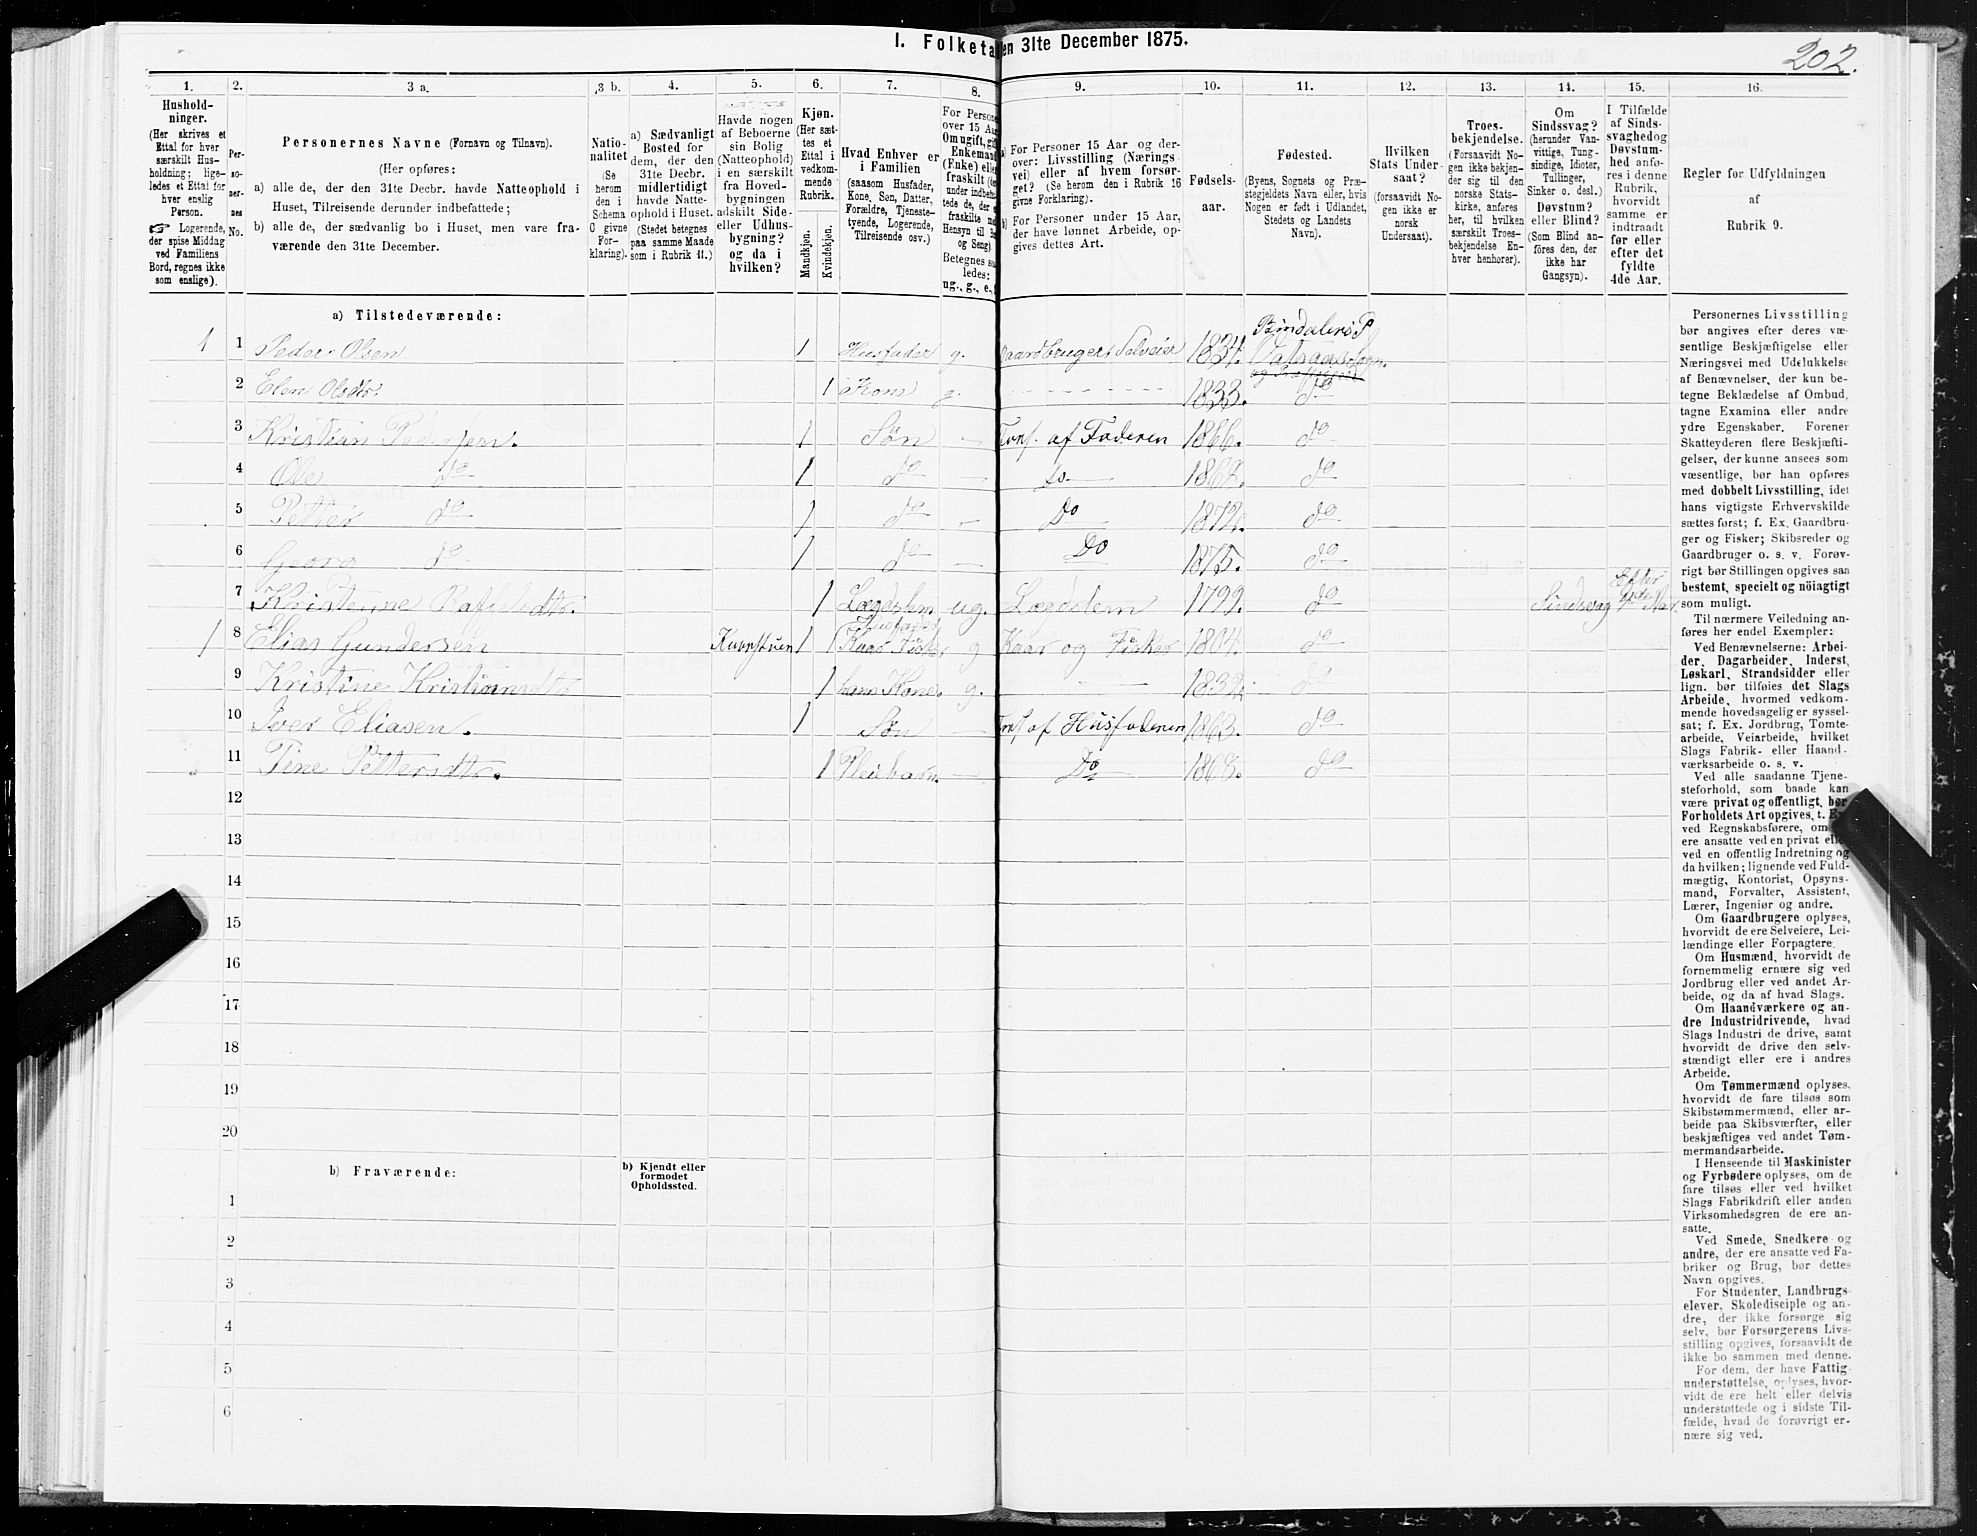 I. Folketa en 31te December 1875.
202.
1.
Hushold-
ninger.
(Her skrives et
Ettal for hver
særskilt Hus-
holdning; lige-
ledes et Ettal for
hver enslig
Person.
☞ Logerende,
der spise Middag
ved Familiens
Bord, regnes ikke
som enslige).
2.
Per-
so-
ner-
nes
No.
3 a.
Personernes Navne (Fornavn og Tilnavn).
(Her opføres:
a) alle de, der den 31te Decbr. havde Natteophold i
Huset, Tilreisende derunder indbefattede;
b) alle de, der sædvanlig bo i Huset, men vare fra-
værende den 31te December.
3 b.
Natio-
nalitet
(Se
herom
den i
Schema
C givne
For-
klaring).
4.
a) Sædvanligt
Bosted for
dem, der den
31te Decbr.
midlertidigt
havde Natte-
ophold i Huset.
(Stedet betegnes
paa samme Maade
som i Rubrik 11.)
5.
Havde nogen
af Beboerne
sin Bolig
(Natteophold)
i en særskilt
fra Hoved-
bygningen
adskilt Side-
eller Udhus-
bygning?
og da i
hvilken?
6.
Kjøn.
(Her sæt-
tes et
Ettal i
vedkom-
mende
Rubrik.
Mandkjøn.
Kvindekjøn.
7.
Hvad Enhver er
i Familien
(saasom Husfader,
Kone, Søn, Datter,
Forældre, Tjeneste-
tyende, Logerende,
Tilreisende osv.)
8.
For Persone
over 15 Aa
Om ugift, gif
Enkemand
(Enke) elle
fraskilt
under indbefat-
tede de, der
fraskilte
Hensyn til
og Seng)
Betegnes
ledes:
ug., g., e.,
9.
a) For Personer 15 Aar og der-
over: Livsstilling (Nærings-
vei) eller af hvem forsør-
get? (Se herom den i Rubrik 16
givne Forklaring).
b) For Personer under 15 Aar,
der have lønnet Arbeide, op-
gives dettes Art.
10.
Fødsels-
aar.
11.
Fødested.
(Byens, Sognets og Præ-
stegjeldets Navn eller, hvis
Nogen er født i Udlandet,
Stedets og Landets
Navn).
12.
Hvilken
Stats Under-
saat?
(forsaavidt No-
gen ikke er
norsk
Undersaat).
13.
Troes-
bekjendelse.
(Forsaavidt No-
gen ikke bekjen-
der sig til den
norske Stats-
kirke, anføres
her, til hvilken
særskilt Troes-
bekjendelse En-
hver henhører).
14.
Om
Sindssvag?
(herunder Van-
vittige, Tung-
sindige, Idioter,
Tullinger,
Sinker o. desl.)
Døvstum?
eller Blind?
(Som Blind an-
føres den, der
ikke har
Gangsyn).
15.
I Tilfælde
af Sinds-
svaghed og
Døvstum-
hed anfø-
res i denne
Rubrik,
hvorvidt
samme er
indtraadt
før eller
efter det
fyldte
4de Aar.
16.
Regler for Udfyldningen
af
Rubrik 9.
a) Tilstedeværende:
1 1 Peder Olsen 1 Husfader g. Gaardbruger Selveier 1834. Bindalens P
2 Elen Olsdtr. 1 Kone g. 1833. do
3 Kristian Pedersen. 1 Søn — Fors. af Faderen 1866. do
4 Ole do 1 do — Do 1869. do
5 Petter do 1 do — Do 1872. do
6 Georg do 1 do — Do 1875. do
7 Kristenne 1 Lægdslem ug. Lægdslem 1799. do Sindssvag Efter 4de Aar
1 8 Elias Gundersen 1 Husfader Kaar Fisker g Kaar og Fisker 1804. do
9 Kristine 1 hans Kone g. — do
10 Iver Eliasen. 1 Søn — Fors. af Husfaderen 1863. do
11 Tine Pettersdtr. 1 Pleiebarn. — Do 1868. do
12
13
14
15
16
17
18
19
20
b) Fraværende:
b) Kjendt eller
formodet
Opholdssted.
1
2
3
4
5
6
Personernes Livsstilling
bør angives efter deres væ-
sentlige Beskjæftigelse eller
Næringsvei med Udelukkelse
af Benævnelser, der kun be-
tegne Beklædelse af Ombud,
tagne Examina eller andre
ydre Egenskaber. Forener
Skatteyderen flere Beskjæfti-
gelser, der kunne ansees som
væsentlige, bør han opføres
med dobbelt Livsstilling, idet
hans vigtigste Erhvervskilde
sættes først; f. Ex. Gaardbru-
ger og Fisker; Skibsreder og
Gaardbruger o. s. v. Forøv-
rigt bør Stillingen opgives saa
bestemt, specielt og nöiagtigt
som muligt.
Til nærmere Veiledning an-
føres her endel Exempler:
Ved Benævnelserne: Arbei-
der, Dagarbeider, Inderst,
Løskarl, Strandsidder eller
lign. bør tilføies det Slags
Arbeide, hvormed vedkom-
mende hovedsagelig er syssel-
sat; f. Ex. Jordbrug, Tomte-
arbeide, Veiarbeide, hvilket
Slags Fabrik- eller Haand-
værksarbeide o. s. v.
Ved alle saadanne Tjene-
steforhold, som baade kan
være privat og offentligt, bør
Forholdets Art opgives, t. E
ved Regnskabsførere, om
ere ansatte ved en privat elle
ved en offentlig Indretning og
da hvilken; lignende ved Fuld-
mægtig, Kontorist, Opsyns-
mand, Forvalter, Assistent,
Lærer, Ingeniør og andre.
Om Gaardbrugere oplyses,
hvorvidt de ere Selveiere, Lei-
lændinge eller Forpagtere.
Om Husmænd, hvorvidt de
fornemmelig ernære sig ved
Jordbrug eller ved andet Ar-
beide, og da af hvad Slags.
Om Haandværkere og an-
dre Industridrivende, hvad
Slags Industri de drive, samt
hvorvidt de drive den selv-
stændigt eller ere i andres
Arbeide.
Om Tømmermænd oplyses,
hvorvidt de fare tilsøs som
Skibstømmermænd, eller ar-
beide paa Skibsværfter, eller
beskjæftiges ved andet Tøm-
mermandsarbeide.
I Henseende til Maskinister
og Fyrbødere oplyses, om de
fare tilsøs eller ved hvilket
Slags Fabrikdrift eller anden
Virksomhedsgren de ere an-
satte.
Ved Smede, Snedkere og
andre, der ere ansatte ved Fa-
briker og Brug, bør dettes
Navn opgives.
For Studenter, Landbrugs-
elever, Skoledisciple og an-
dre, der ikke forsørge sig
selv, bør Forsørgerens Livs-
stilling opgives, forsaavidt de
ikke bo sammen med denne.
For dem, der have Fattig-
understøttelse, oplyses, hvor-
vidt de ere helt eller delvis
understøttede og i sidste Til-
fælde, hvad de forøvrigt er-
nære sig ved.